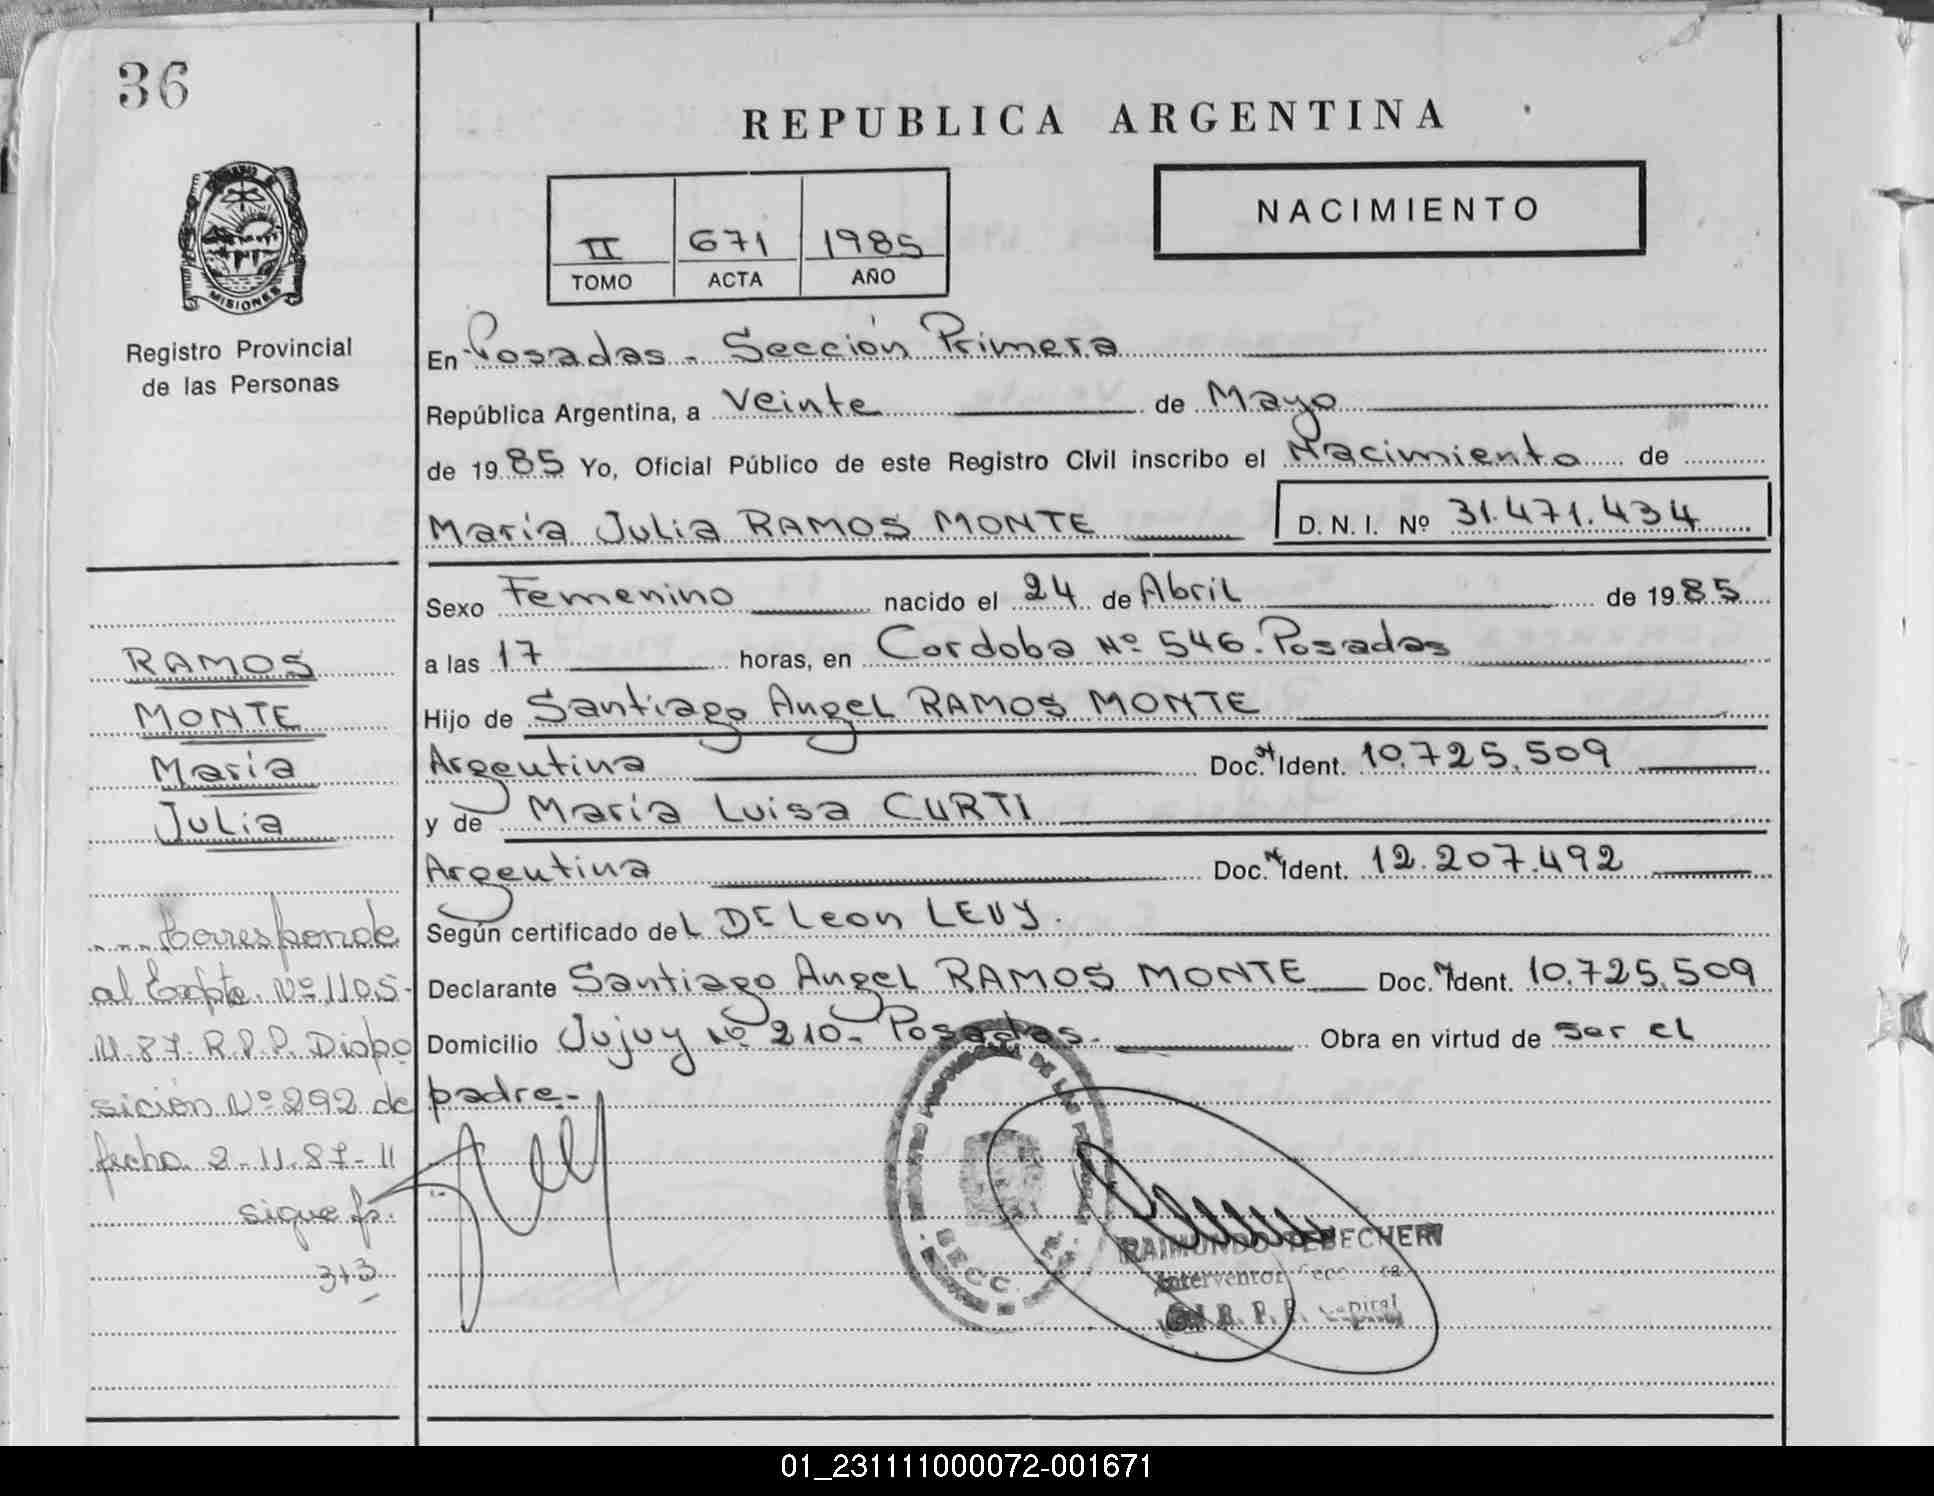 36
REPUBLICA ARGENTINA
NACIMIENTO
II 671 1985
TOMO ACTA AÑO
MISIONES
Registro Provincial
de las Personas
En Posadas - Sección Primera
República Argentina, a Veinte de Mayo
de 1985 Yo, Oficial Público de este Registro Civil inscribo el Nacimiento de
María Julia RAMOS MONTE D. N. I. Nº 31.471.434
Sexo Femenino nacido el 24 de Abril de 1985
a las 17 horas, en Cordoba Nº 546. Posadas
Hijo de Santiago Angel RAMOS MONTE
Argentina Doc. Ident. 10.725.509
y de María Luisa CURTI
Argentina Doc. Ident. 12.207.492
Según certificado del Dr Leon LEVY.
Declarante Santiago Angel RAMOS MONTE Doc. Ident. 10.725.509
Domicilio Jujuy Nº 210- Posadas. Obra en virtud de ser el
padre.-
RAMOS
MONTE
María
Julia
Corresponde
al Expte. Nº 1105-
M.87. R.P.P. Dispo
sición Nº 292 de
fecha 2-11-87-11
sigue fs.
313
SECC.
RAIMUNDO TEBECHERI
Interventor
R. P. P. Capital
01_231111000072-001671